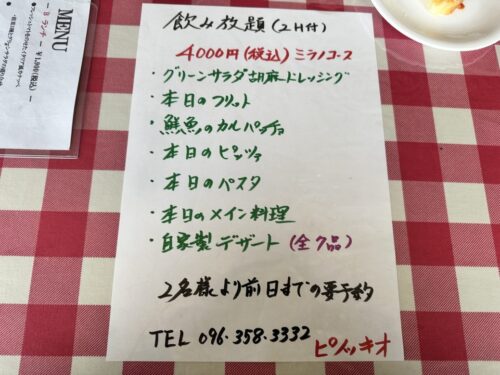 飲み放題(2H付)
4000円(税込)ミラノコース
・グリーンサラダ胡麻ドレッシング
・本日のフリット
・鮮魚のカルパッチョ
・本日のピッツァ
・本日のパスタ
・本日のメイン料理
・自家製デザート(全7品)
2名様より前日までの要予約
TEL 096・358・3332
ピノッキオ
MENU
ー B ランチ ー ¥1,800(税込) ー